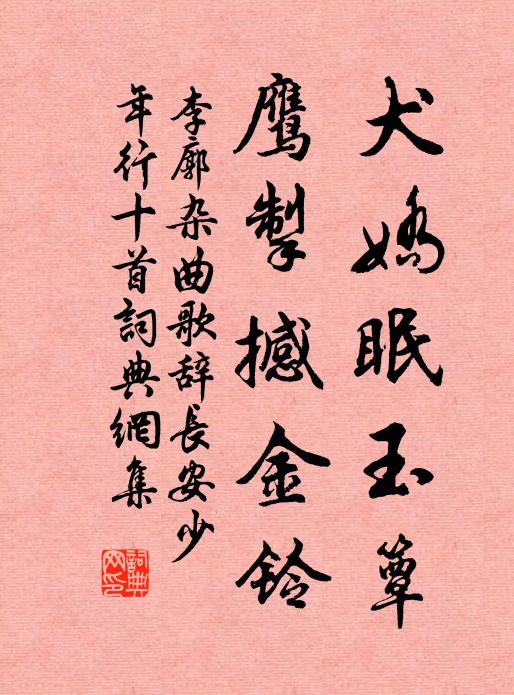 犬娇眠玉簟
鹰掣撼金铃
李廓杂曲歌辞长安少
年行十首詞典網集
詞典网印